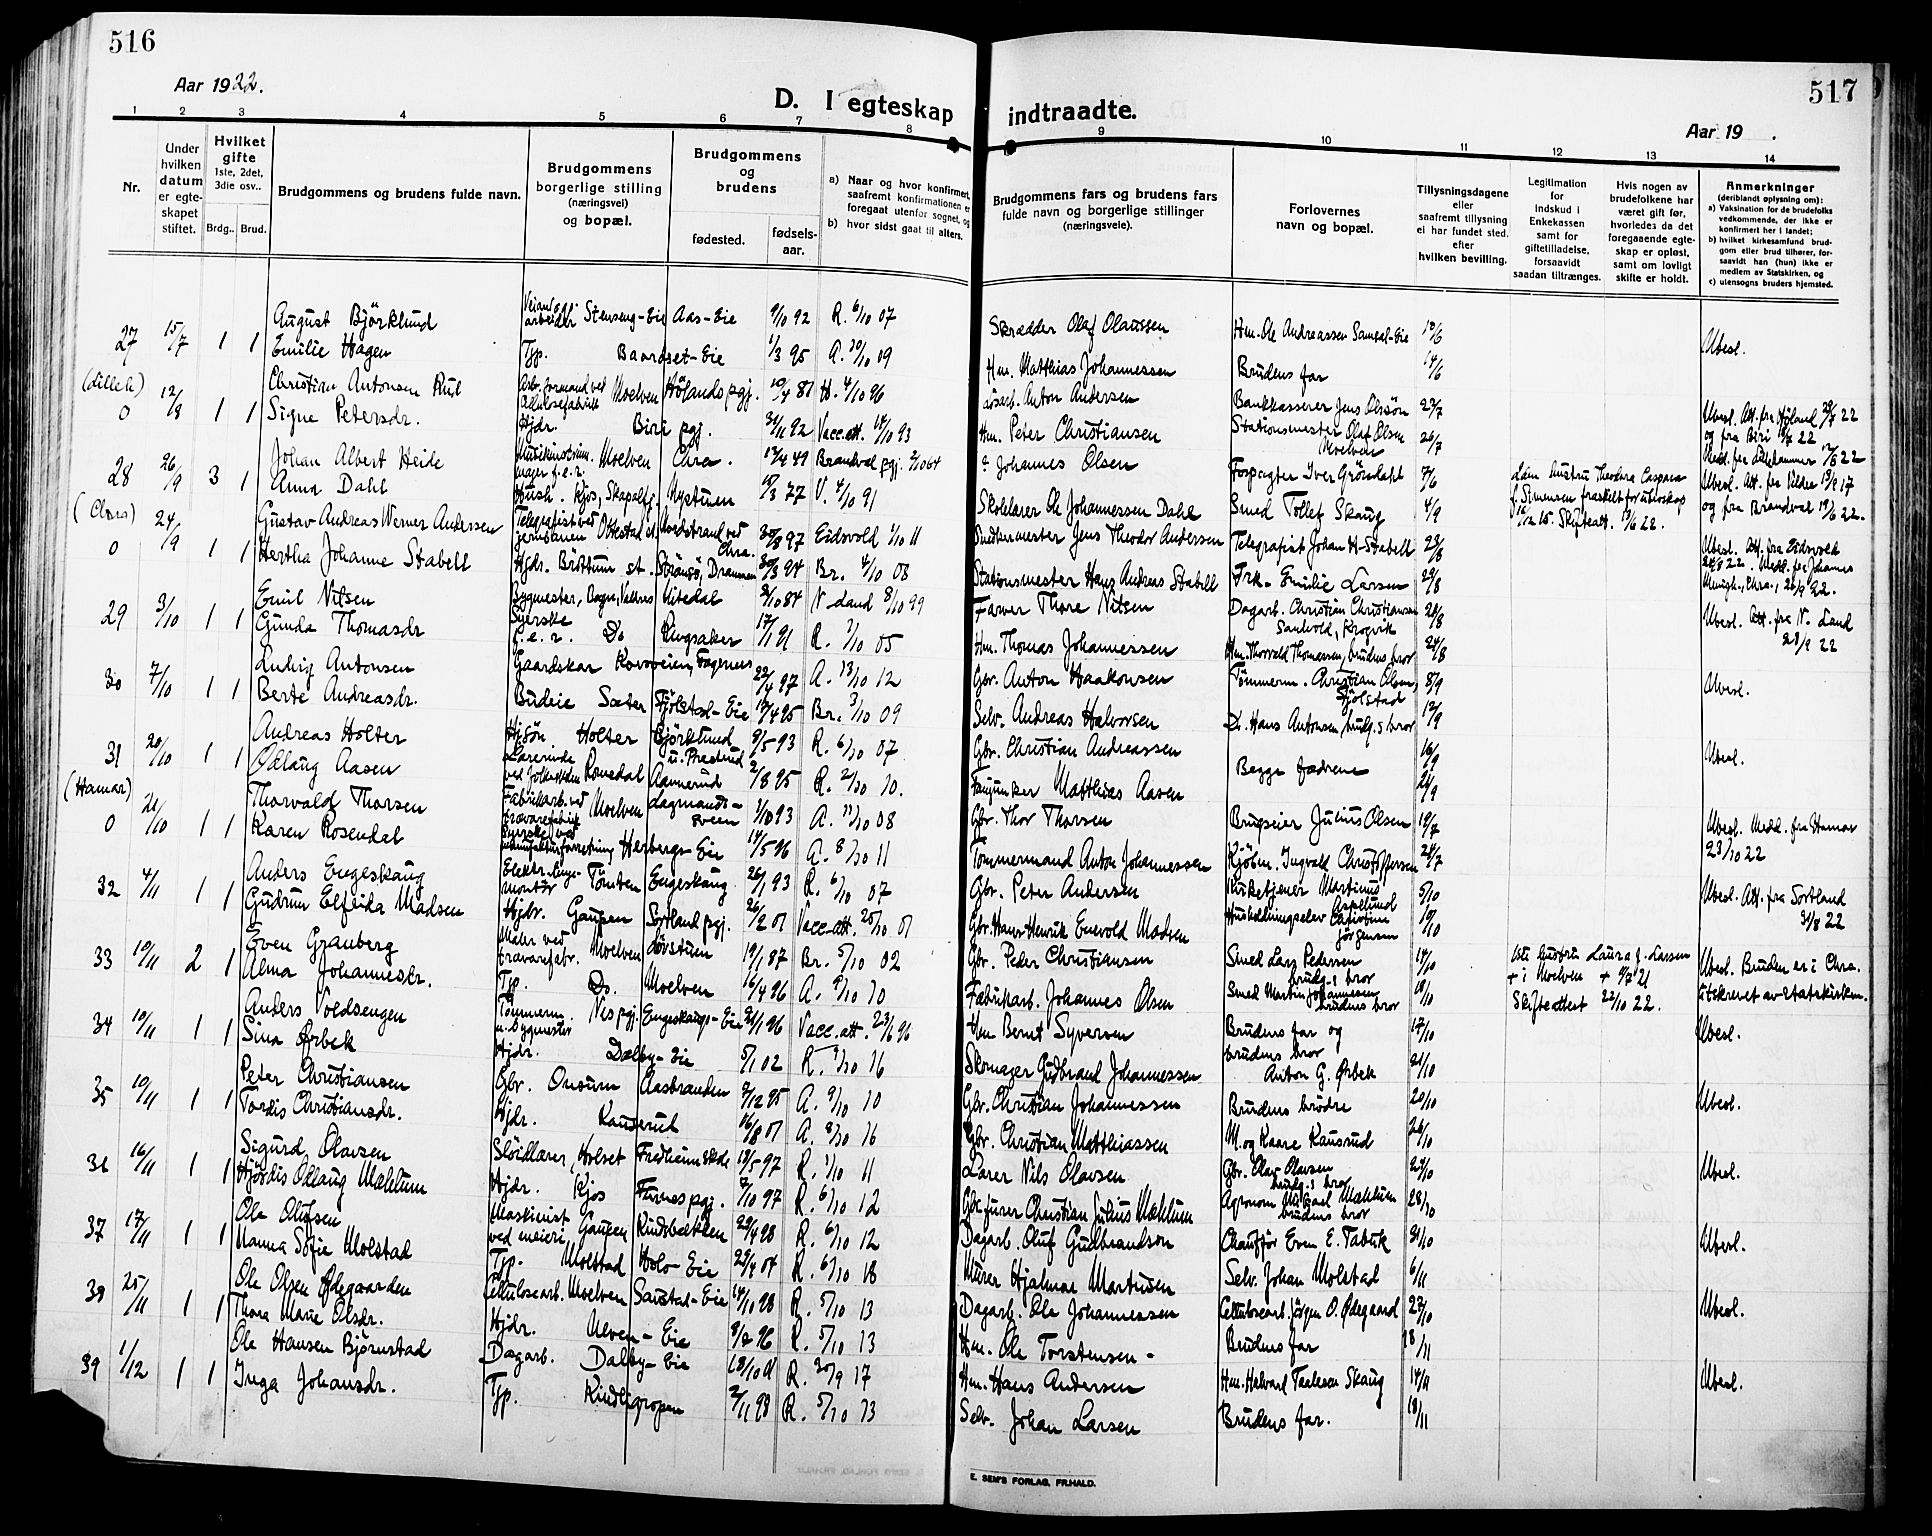 516
517
Aar 1922.
Aar 19 .
D. I egteskap indtraadte.
1 2 3 4 5 6 7 8 9 10 11 12 13 14
Nr.
Under hvilken datum er egteskapet stiftet.
Hvilket gifte 1ste, 2det, 3die osv..
Brdg.. Brud.
Brudgommens og brudens fulde navn.
Brudgommens borgerlige stilling (næringsvei) og bopæl.
Brudgommens og brudens
fødested.
fødsels-aar.
a) Naar og hvor konfirmert, saafremt konfirmationen er foregaat utenfor sognet, og
b) hvor sidst gaat til alters.
Brudgommens fars og brudens fars fulde navn og borgerlige stillinger (næringsveie).
Forlovernes navn og bopæl.
Tillysningsdagene eller saafremt tillysning ei har fundet sted. efter hvilken bevilling.
Legitimation for indskud i Enkekassen samt for giftetilladelse, forsaavidt saadan tiltrænges.
Hvis nogen av brudefolkene har været gift før, hvorledes da det foregaaende egteskap er opløst, samt om lovligt skifte er holdt.
Anmerkninger (deriblandt oplysning om):
a) Vaksination for de brudefolks vedkommende, der ikke er konfirmert her i landet;
b) hvilket kirkesamfund brudgom eller brud tilhører, forsaavidt han (hun) ikke er medlem av Statskirken, og
c) utensogns bruders hjemsted.
27 15/7 1 1 August Björklund Stenseng-Eie Aas-Eie 9/10 92 R. 6/10 07 Skrædder Olaf Olaussen Hm. Ole Andreassen Samsal-Eie 13/6
Emilie Hagen Tjp. Baardset-Eie 1/3 95 A. 10/10 09 Hm. Matthias Johannessen Brudens far 14/6 Ubesl.
0 12/8 1 1 Christian Antonsen Moelven Hölands pgj. 10/4 87 H. 4/10 96 Anton Andersen Bankkasserer Jens Olssön 23/7
Signe Petersdr. Hjdr. Biri pgj. 24/11 92 Vacc.att. 14/10 93 Hm. Peter Christiansen Stationsmester Olaf Olsen Moelven 26/7 Ubesl. Att. fra Höland 22 og fra Biri 22
28 26/9 3 1 Johan Albert Heide Moelven Chra. 13/4 49 Brandval pgj. 2/10 64 Johannes Olsen Forpagter Iver Gröndahl 7/6
Anna Dahl Hush. Kjos, Skapalpgj. Nystuen 18/3 77 V. 4/10 91 Skolelærer Ole Johannessen Dahl Smed Tollef Skaug 4/9 Skifteatt. 13/6 22. og fra Brandval 19/6 22.
0 24/9 1 1 Gustav Andreas Werner Andersen Telegrafist ved jernbanen Ottestad st. Nordstrand ved Chra. 30/8 97 Eidsvold 1/10 11 Snedkermester Jens Theodor Andersen Telegrafist Johan H. Stabell 23/8
Hertha Johanne Stabell Hjdr. Bröttum st. Strömsö, Drammen 30/3 94 Br. 4/10 08 Stationsmester Hans Andreas Stabell Frk. Emilie Larsen 29/8 Ubesl. Att. fra Eidsvold
29 3/10 1 1 Emil Nilsen Bygmester, Bagn, Valdres Hitedal 2/10 84 N-Land 8/10 99 Farver Thore Nilsen Dagarb. Christian Christiansen Sandvold, Krogvik 28/8
Gunda Thomasdr Syerske f.e.r. Do Ringsaker 17/1 91 R. 1/10 05 Hm. Thomas Johannessen Hm. Thorvald Thomassen, brudens bror 24/8 Ubesl. Att. fra N. Land 28/9 22
30 7/10 1 1 Ludvig Antonsen Gaardskar Fagernes 22/4 97 A. 13/10 12 Gbr. Anton Haakonsen Tömmerm. Christian Olsen, Fjölstad 8/9
Berte Andreasdr. Budeie Sæter Fjölstad-Eie 17/4 95 Br. 3/10 09 Selv. Andreas Halvorsen Hans Antonsen, brudg.s bror 12/9 Ubesl.
31 20/10 1 1 Andreas Holter Hjsön Holter Björklund u. Præsterud 9/5 93 R. 6/10 07 Gbr. Christian Andreassen Begge fædrene 16/9
Odlaug Aasen Lærerinde Romedal Aannerud 2/8 95 R. 2/10 10. Fanjunker Matthias Aasen 21/9 Ubesl.
(Hamar)
0 21/10 1 1 Thorvald Thorsen Fabrikarb. ved trævarefabrik Moelven Lagmandssveen 1/10 93 A. 11/10 08 Gbr. Thor Thorsen Brugseier Julius Olsen 19/7
Karen Rosendal Syerske ved manufakturforretning Herberg-Eie 14/5 96 A. 8/10 11 Tömmermand Anton Johannessen Kjöbm. Ingvald Christoffersen 24/7 Ubesl. Medd. fra Hamar 23/10 22
32 4/11 1 1 Anders Engeskaug montör Tömten Engeskaug 26/1 93 R. 6/10 07 Gbr. Peter Andersen Kirketjener Martinus Asplund 5/10
Gudrun Elfrida Madsen Hjdr. Gaupen Sortland pgj. 26/2 01 Vacc.att. 25/10 01 Gbr. Hans Henrik Enevold Madsen Husholdningselev Jörgensen 10/10 Ubesl. Att. fra Sortland 31/8 22
33 10/11 2 1 Even Granberg Maler ved trævarefabr. Moelven Lövstuen 19/1 87 Br. 5/10 02 Gbr. Peder Christiansen Smed Lars Pedersen brudg.s bror 14/10
Alma Johannesdr. Tjp. Do. Moelven 16/4 96 A. 9/10 10 Fabrikarb. Johannes Olsen Smed Martin Johannessen brudens bror 18/10 hustru Laura f. Larssen + i Moelven + 9/7 21 Skifteattest 22/10 22. Ubesl. Bruden er i Chra. utskrevet av statskirken.
34 10/11 1 1 Anders Voldsengen Tömmerm. u. bygmester Nes pgj. Engeskaugs-Eie 21/1 96 Vacc.att. 23/6 96 Hm Bernt Syversen Brudens far og 17/10
Sina Ørbek Hjdr. Dælby-Eie 5/1 02 R. 1/10 16 Skomager Gudbrand Johannessen brudens bror Anton G. Ørbek 21/10 Ubesl.
35 10/11 1 1 Peter Christiansen Gbr. Onsum Aasbranden 2/12 95 A. 9/10 10 Gbr. Christian Johannessen Brudens brödre 20/10
Tordis Christiansdr. Hjdr. Kauserud 16/8 01 A. 8/10 16 Gbr. Christian Matthiassen M. og Kaare Kausrud 26/10 Ubesl.
36 16/11 1 1 Sigurd Olavsen Slöidlærer, Holset Fredheim skole 18/5 97 R. 1/10 11 Lærer Nils Olavsen Gbr. Olav Olavsen brudg.s bror 24/10
Hjördis Odlaug Mæhlum Hjdr. Kjos Furnes pgj. 7/10 97 R. 6/10 12 Christian Julius Mæhlum Agronom Mikael Mæhlum brudens bror 28/10 Ubesl.
37 17/11 1 1 Ole Olufsen Maskinist ved meieri, Gaupen Rudsbakken 29/4 98 R. 6/10 12 Dagarb. Oluf Gudbrandsön Chauffør Even E. Tabuk 31/10
Nanna Sofie Molstad Tjp. Molstad Holo-Eie 29/4 04 R. 6/10 18 Murer Hjalmar Martinsen Selv. Johan Molstad 6/11 Ubesl.
39 25/11 1 1 Ole Olsen Ødegaarden Cellulosearb. Moelven Saustad-Eie 14/10 98 R. 5/10 13 Dagarb. Ole Johannessen Cellulosearb. Jörgen O. Ødegaard 27/10
Thora Marie Olsdr. Hjdr. Ulven-Eie 9/2 96 R. 5/10 13 Hm. Ole Torstensen Brudens far 18/11 Ubesl.
39 1/12 1 1 Ole Hansen Bjørnstad Dagarb. Dalby-Eie 18/10 01 R. 30/9 17 Hm. Hans Andersen Hm. Halvard Skaug 14/11
Inga Johansdr. Tjp. Kindligropen 2/11 98 R. 5/10 13 Selv. Johan Larsen Brudens far. 18/11 Ubesl.
E. SEM'S FORLAG, FR.HALD.